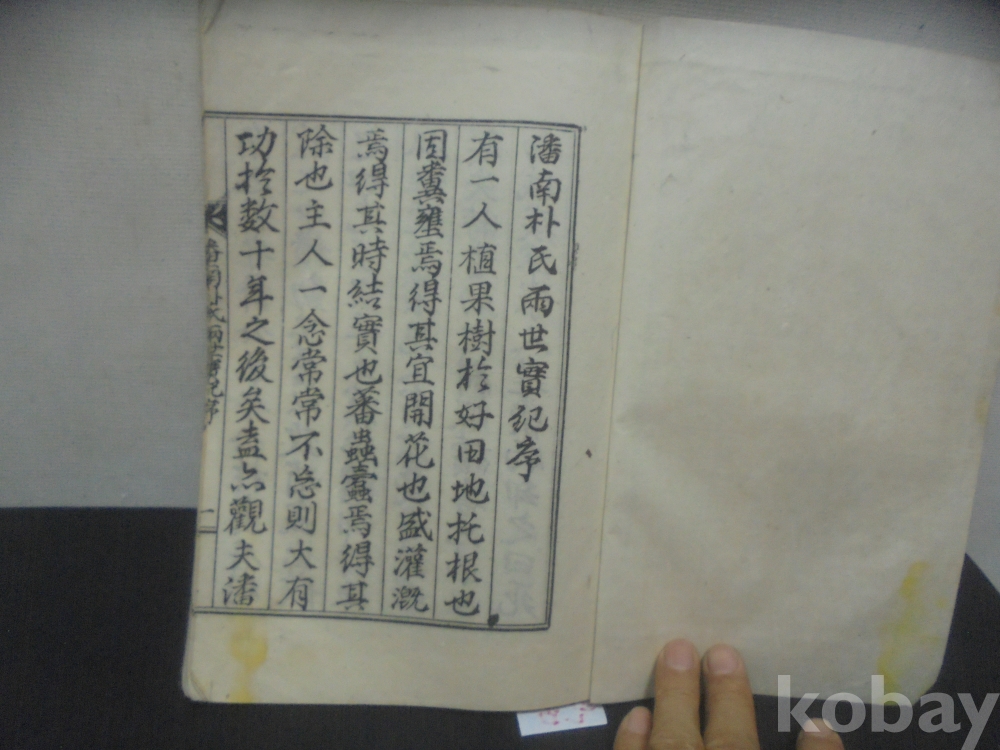 潘南朴氏兩世寶紀序
有一人植果樹扵好田地托根也
固糞壅焉得其宜開花也盛灌漑
焉得其時結實也蕃蟲蠹焉得其
除也主人一念常常不忘則大有
功扵数十年之後矣盍亦觀夫潘
潘南朴氏兩世寶紀序
一
kobay